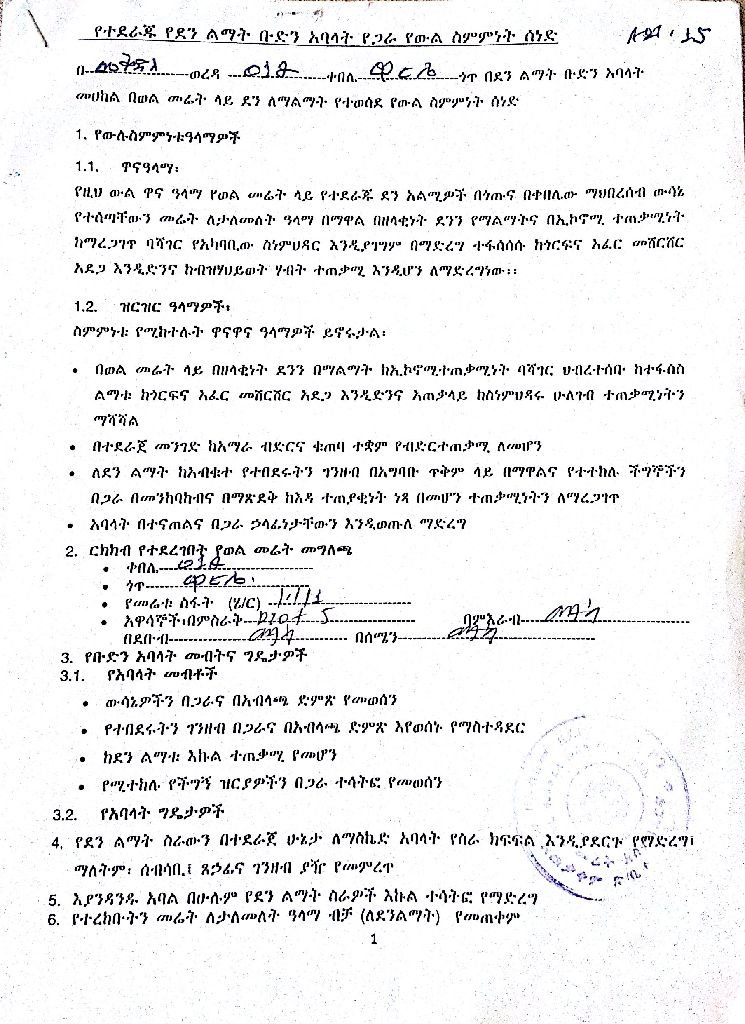 የተደራጁ የደን ልማት ቡድን አባላት የጋራ የውል ስምምነት ሰነድ
በ ወረዳ 012 ቀበሌ ጎጥ በደን ልማት ቡድን አባላት
መሀከል በወል መሬት ላይ ደን ለማልማት የተወሰደ የውል ስምምነት ሰነድ
1. የውሉስምምነቱዓላማዎች
1.1. ዋናዓላማ፡
የዚህ ውል ዋና ዓላማ የወል መሬት ላይ የተደራጁ ደን አልሚዎች በጎጡና በቀበሌው ማህበረሰብ ውሳኔ
የተሰጣቸውን መሬት ለታለመለት ዓላማ በማዋል በዘላቂነት ደንን የማልማትና በኢኮኖሚ ተጠቃሚነት
ከማረጋገጥ ባሻገር የአካባቢው ስነምህዳር እንዲያገግም በማድረግ ተፋሰሰሱ ከጎርፍና አፈር መሸርሸር
አደጋ እንዲድንና ከብዝሃህይወት ሃብት ተጠቃሚ እንዲሆን ለማድረግነው፡፡
1.2. ዝርዝር ዓላማዎች፤
ስምምነቱ የሚከተሉት ዋናዋና ዓላማዎች ይኖሩታል፡
• በወል መሬት ላይ በዘላቂነት ደንን በማልማት ከኢኮኖሚተጠቃሚነት ባሻገር ህብረተሰቡ ከተፋሰስ
ልማቱ ከጎርፍና አፈር መሸርሸር አደጋ እንዲድንና አጠቃላይ ከስነምህዳሩ ሁለገብ ተጠቃሚነትን
ማሻሻል
• በተደራጀ መንገድ ከአማራ ብድርና ቁጠባ ተቋም የብድርተጠቃሚ ለመሆን
• ለደን ልማት ከአብቁተ የተበደሩትን ገንዘብ በአግባቡ ጥቅም ላይ በማዋልና የተተከሉ ችግኞችን
በጋራ በመንከባከብና በማጽደቅ ከእዳ ተጠያቂነት ነጻ በመሆን ተጠቃሚነትን ለማረጋገጥ
• አባላት በተናጠልና በጋራ ኃላፊነታቸውን እንዲወጡ ለማድረግ
2. ርክክብ የተደረገበት የወል መሬት መግለጫ
• ቀበሌ 012
• ጎጥ
• የመሬቱ ስፋት (ሄ/ር)
• አዋሳኞች፡በምስራቅ plot 5 በምእራብ
በደቡብ በሰሜን
3. የቡድን አባላት መብትና ግዴታዎች
3.1. የአባላት መብቶች
• ውሳኔዎችን በጋራና በአብላጫ ድምጽ የመወሰን
• የተበደሩትን ገንዘብ በጋራና በአብላጫ ድምጽ እየወሰኑ የማስተዳደር
• ከደን ልማቱ እኩል ተጠቃሚ የመሆን
• የሚተከሉ የችግኝ ዝርያዎችን በጋራ ተሳትፎ የመወሰን
3.2. የአባላት ግዴታዎች
4. የደን ልማት ስራውን በተደራጀ ሁኔታ ለማስኬድ አባላት የስራ ክፍፍል እንዲያደርጉ የማድረግ፤
ማለትም፡ ሰብሳቢ፤ ጸኃፊና ገንዘብ ያዥ የመምረጥ
5. እያንዳንዱ አባል በሁሉም የደን ልማት ስራዎች እኩል ተሳትፎ የማድረግ
6. የተረከቡትን መሬት ለታለመለት ዓላማ ብቻ (ለደንልማት) የመጠቀም
1